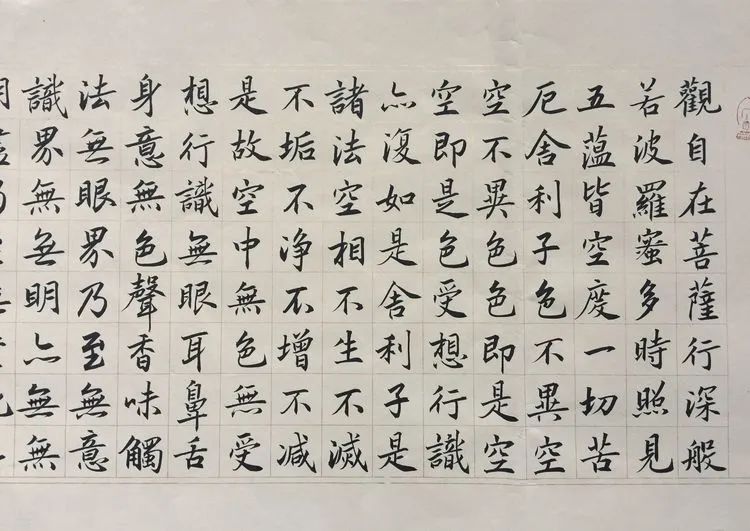 觀自在菩薩行深般
若波羅蜜多時照見
五薀皆空度一切苦
厄舍利子色不異空
空不異色色即是空
空即是色受想行識
亦復如是舍利子是
諸法空相不生不滅
不垢不净不增不减
是故空中無色無受
想行識無眼耳鼻舌
身意無色聲香味觸
法無眼界乃至無意
識界無無明亦無無